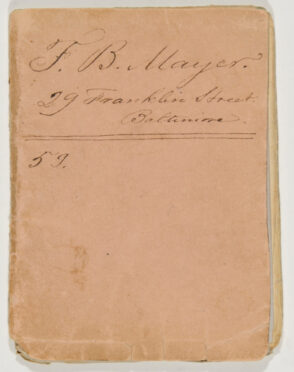 F. B. Mayer.
29 Franklin Street.
Baltimore.
57.